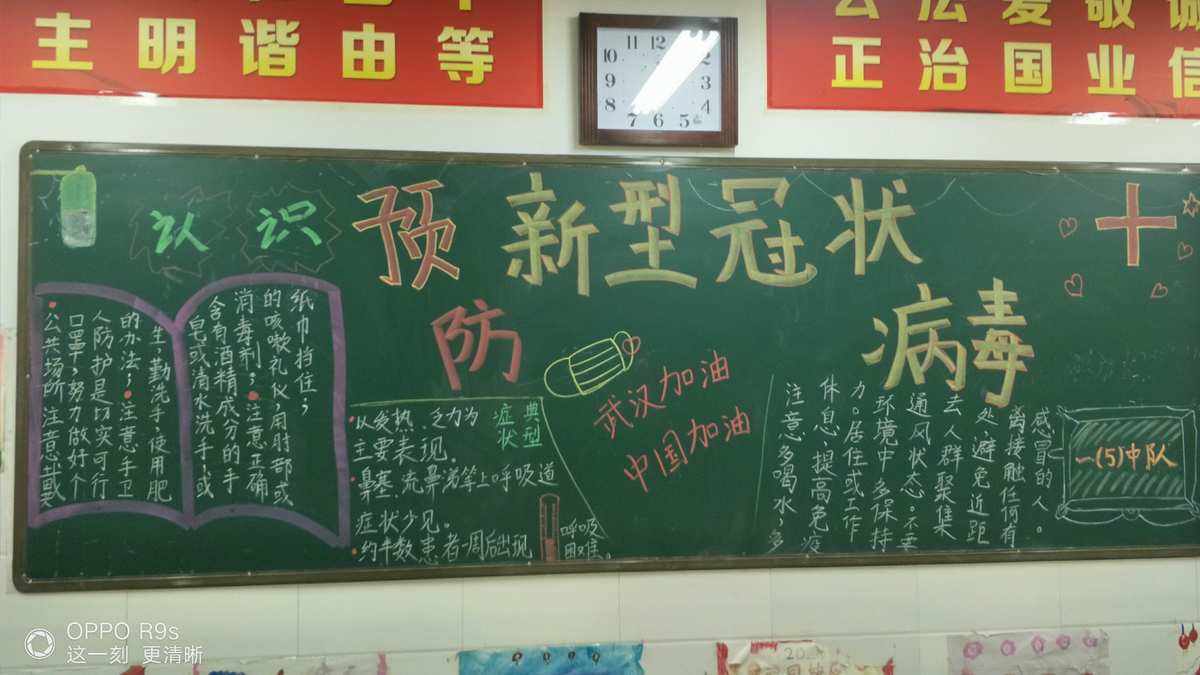 主明谐由等
公法爱敬诚
正治国业信
11 12
10 2
9 3
8 4
7 6 5
认识
预新型冠状
防
病毒
·公共场阶注意戴
口罩,努力做好个
人防护是切实可行
的办法;·注意手卫
生,勤洗手,使用肥
皂或清水洗手,或
含有酒精成分的手
消毒剂;·注意正确
的咳嗽礼仪,用肘部或
纸巾挡住;
典型
症状
·以发热、乏力为
主要表现。
·鼻塞、流鼻涕等上呼吸道
症状少见。
·约半数患者一周后出现
呼吸
困难。
武汉加油
中国加油
注意多喝水,多
休息,提高免疫
力。居住或工作
环境中多保持
通风状态。不要
去人群聚集
处,避免近距
离接触任何有
感冒的人。
一(5)中队
OPPO R9s
这一刻 更清晰